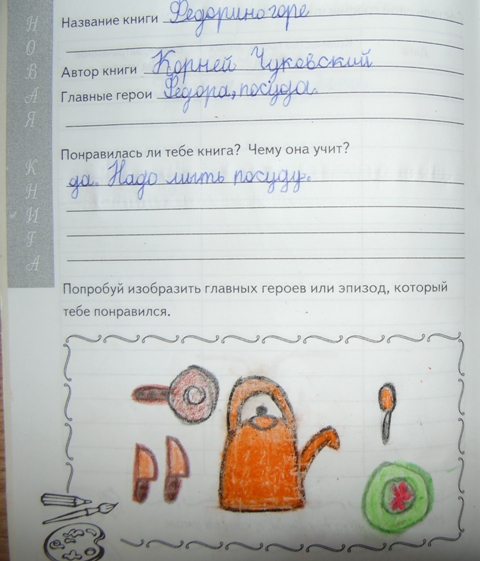 НОВАЯ КНИГА
Название книги Федорино горе
Автор книги Корней Чуковский
Главные герои Федора, посуда.
Понравилась ли тебе книга? Чему она учит?
да. Надо мыть посуду.
Попробуй изобразить главных героев или эпизод, который
тебе понравился.